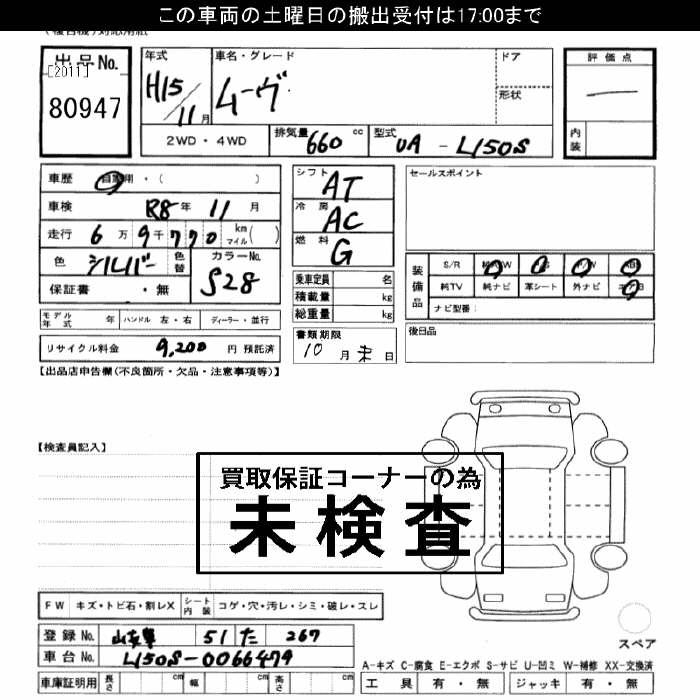 この車両の土曜日の搬出受付は17:00まで
出品No. [2011] 80947
年式 H15/11月
車名・グレード ムーヴ
ドア
形状
評価点 ―
内装
2WD・4WD
排気量 660 cc
型式 UA - L150S
車歴 自家用・( )
車検 R8年 11月
走行 6万9千770 km マイル( )
色 シルバー 色替
カラーNo. S28
保証書 ・無
シフト AT
冷房 AC
燃料 G
乗車定員 名
積載量 kg
総重量 kg
セールスポイント
装備品 S/R 純AW PS PW ABS
純TV 純ナビ 革シート 外ナビ エアB
ナビ型番:
モデル年式 年 ハンドル 左・右 ディーラー・並行
リサイクル料金 9,200 円 預託済
書類期限 10月末日
後日品
【出品店申告欄(不良箇所・欠品・注意事項等)】
【検査員記入】
買取保証コーナーの為
未検査
FW キズ・トビ石・割レX
シート内装 コゲ・穴・汚レ・シミ・破レ・スレ
登録No. 51 た 267
車台No. L150S-0066479
車庫証明用 長さ cm 幅 cm 高さ cm
スペア
A-キズ C-腐食 E-エクボ S-サビ U-凹ミ W-補修 XX-交換済
工具 有・無 ジャッキ 有・無